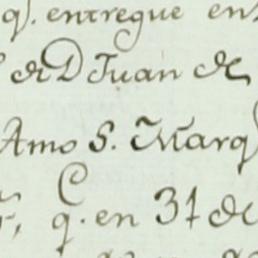 q.ͤ entregue en
de D Juan de
Amo S. Marq
q. en 31 de